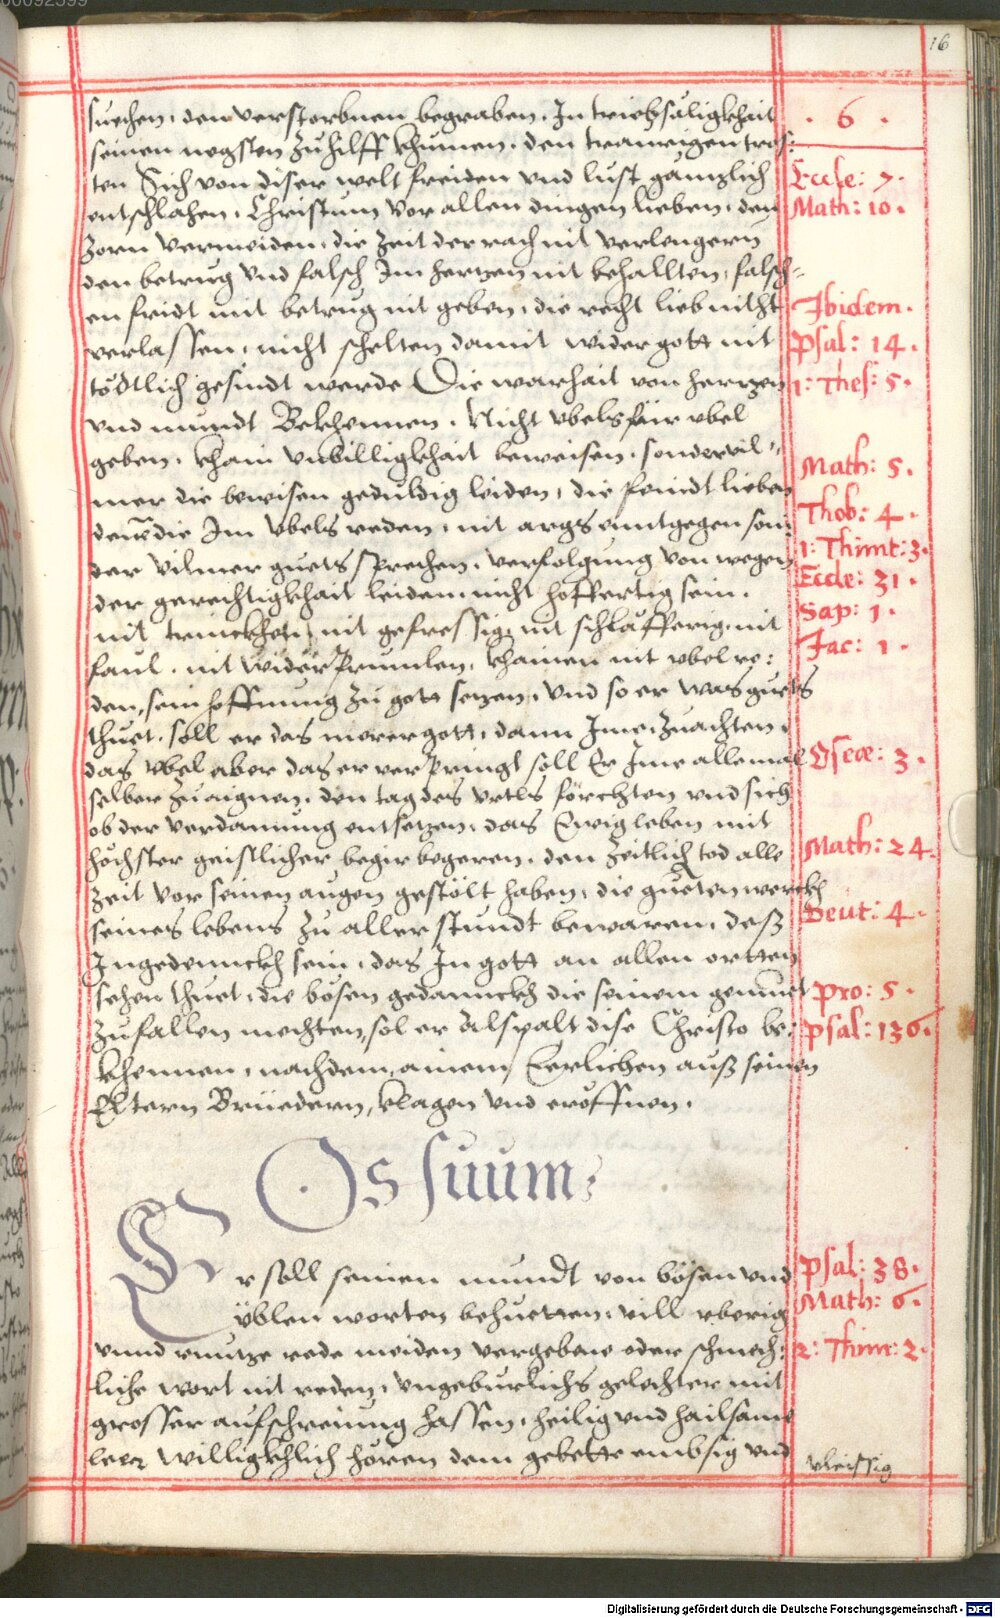 16
suechen, den verstorbnen begraben. In triebsäligkhait
. 6 .
seinen negsten zuhilff khumen. den traurigen trös:
ten Sich von diser welt freiden vnd lust gäntzlich
Eccle: 7.
entschlahen. Christum vor allen dingen lieben, den
Math: 10.
zorn vermeiden, die zeit der rach nit verlengern
den betrug vnd falsch Im hertzen nit behallten, falsch=
en fridt mit betrug nit geben, die recht lieb nitht
Ibidem.
verlassen, nicht schelten damit wider gott nit
Psal: 14.
tödtlich gesindt werde Die warhait von hertzen
1: Thes: 5.
vnd mundt Bekhennen. Nicht vbels für vbel
geben. khain vnbilligkhait beweisen. sonder vil=
Math: 5.
mer die bewisen geduldig leiden, die feindt lieben
Thob: 4.
denen die Im vbels reden, nit args enntgegen son:
1: Thimt: 3.
der vilmer guets sprechen. verfolgung von wegen
Eccle: 31.
der gerechtigkhait leiden, nicht hoffertig sein.
Sap: 1.
nit trinckher, nit gefressig, nit schläfferig, nit
Jac: 1.
faul. nit wider Prumlen, khainen nit vbel re:
den, sein hoffnung zu gott setzen. Vnd so er was guets
thuet. soll er das merer gott, dann Ime zuachten,
das vbel aber das er verPringt soll Er Ime allemal
Oseæ: 3.
selber zuaignen, den tag des vrtls förchten vnd sich
ob der verdamung entsetzen, das Ewig leben mit
höchster geistlicher begir begeren. den zeitlich tod alle
Math: 24.
zeit vor seinen augen gestölt haben, die gueten werckh
seines lebens zu aller stundt bewaren, deß
Deut: 4.
Ingedennckh sein, das In gott an allen ortten
sehen thuet, die bösen gedannckh die seinem gemuet
Pro: 5.
zufallen mechten, sol er alspalt dise Christo be:
Psal: 136.
khennen, nachdem, ainem Eerlichen auß seinen
Eltern Brüedern, klagen vnd eröffnen.
Os suum
Er soll seinen mundt von bösen vnd
Psal: 38.
üblen worten behuetten, vill vberig
Math: 6.
vnnd vnutze rede meiden vergebne oder schmech:
2: Thim: 2.
liche wort nit reden, vngeburlichs gelechter mit
grosser aufschreiung hassen, heilig vnd hailsame
leer willigkhlich hören dem gebette embsig vnd
vleissig
Digitalisierung gefördert durch die Deutsche Forschungsgemeinschaft - DFG